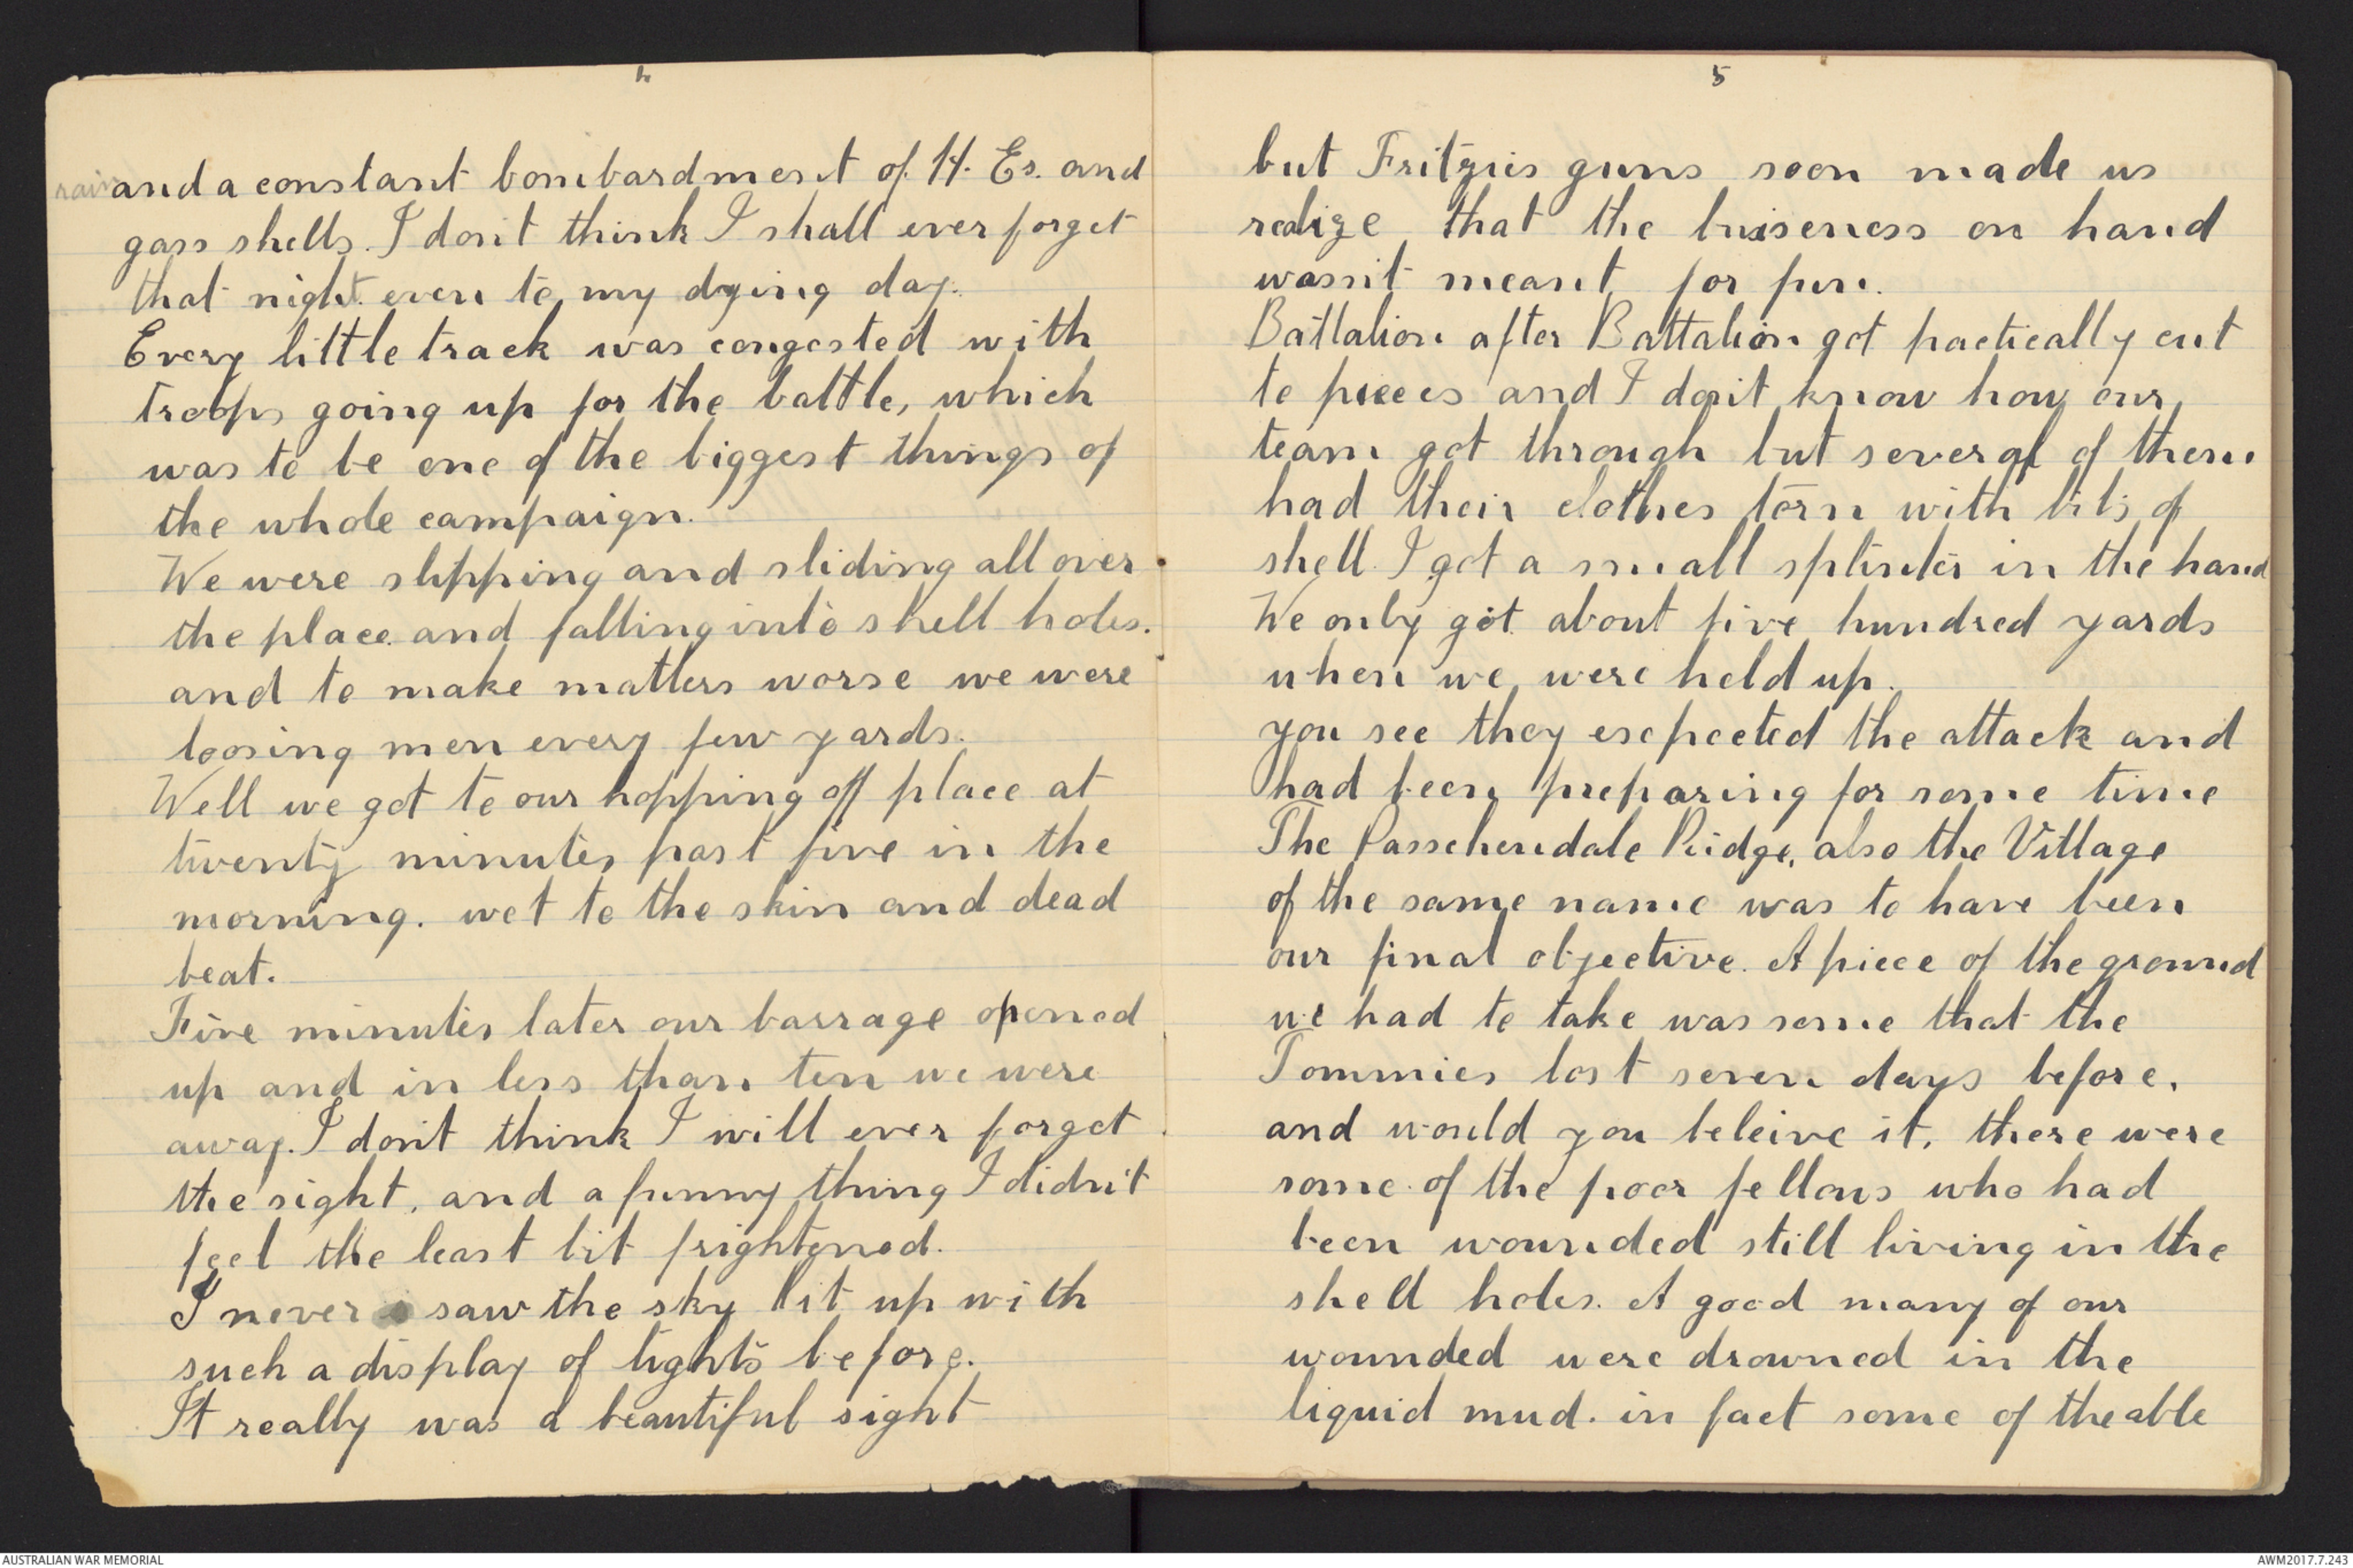 4
rain and a constant bombardment of H. Es. and
gass shells. I don't think I shall ever forget
that night even to my dying day.
Every little track was congested with
troops going up for the battle, which
was to be one of the biggest things of
the whole campaign.
We were slipping and sliding all over
the place and falling into shell holes.
and to make matters worse we were
loosing men every few yards.
Well we got to our hopping off place at
twenty minutes past five in the
morning. wet to the skin and dead
beat.
Five minutes later our barrage opened
up and in less than ten we were
away. I don't think I will ever forget
the sight, and a funny thing I didn't
feel the least bit frightened.
I never saw the sky lit up with
such a display of lights before.
It really was a beautiful sight
5
but Fritzies guns soon made us
realize that the buiseness on hand
wasn't meant for fun.
Battalion after Battalion got pactically cut
to pieces and I don't know how our
team got through but several of them
had their clothes torn with bits of
shell. I got a small splinter in the hand
We only got about five hundred yards
when we were held up.
you see they escpected the attack and
had been preparing for some time
The Passchendale Ridge, also the Village
of the same name was to have been
our final objective. A piece of the ground
we had to take was some that the
Tommies lost seven days before,
and would you beleive it, there were
some of the poor fellows who had
been wounded still living in the
shell holes. A good many of our
wounded were drowned in the
liquid mud. in fact some of the able
AUSTRALIAN WAR MEMORIAL
AWM2017.7.243